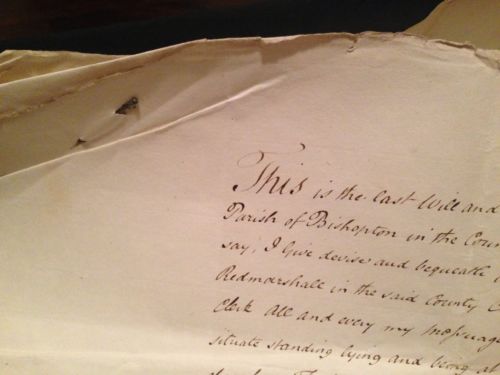 This is the last Will and
Parish of Bishopton in the Coun
say, I Give devise and bequeath
Redmarshall in the said County
Clerk All and every my Messuage
situate standing lying and being at